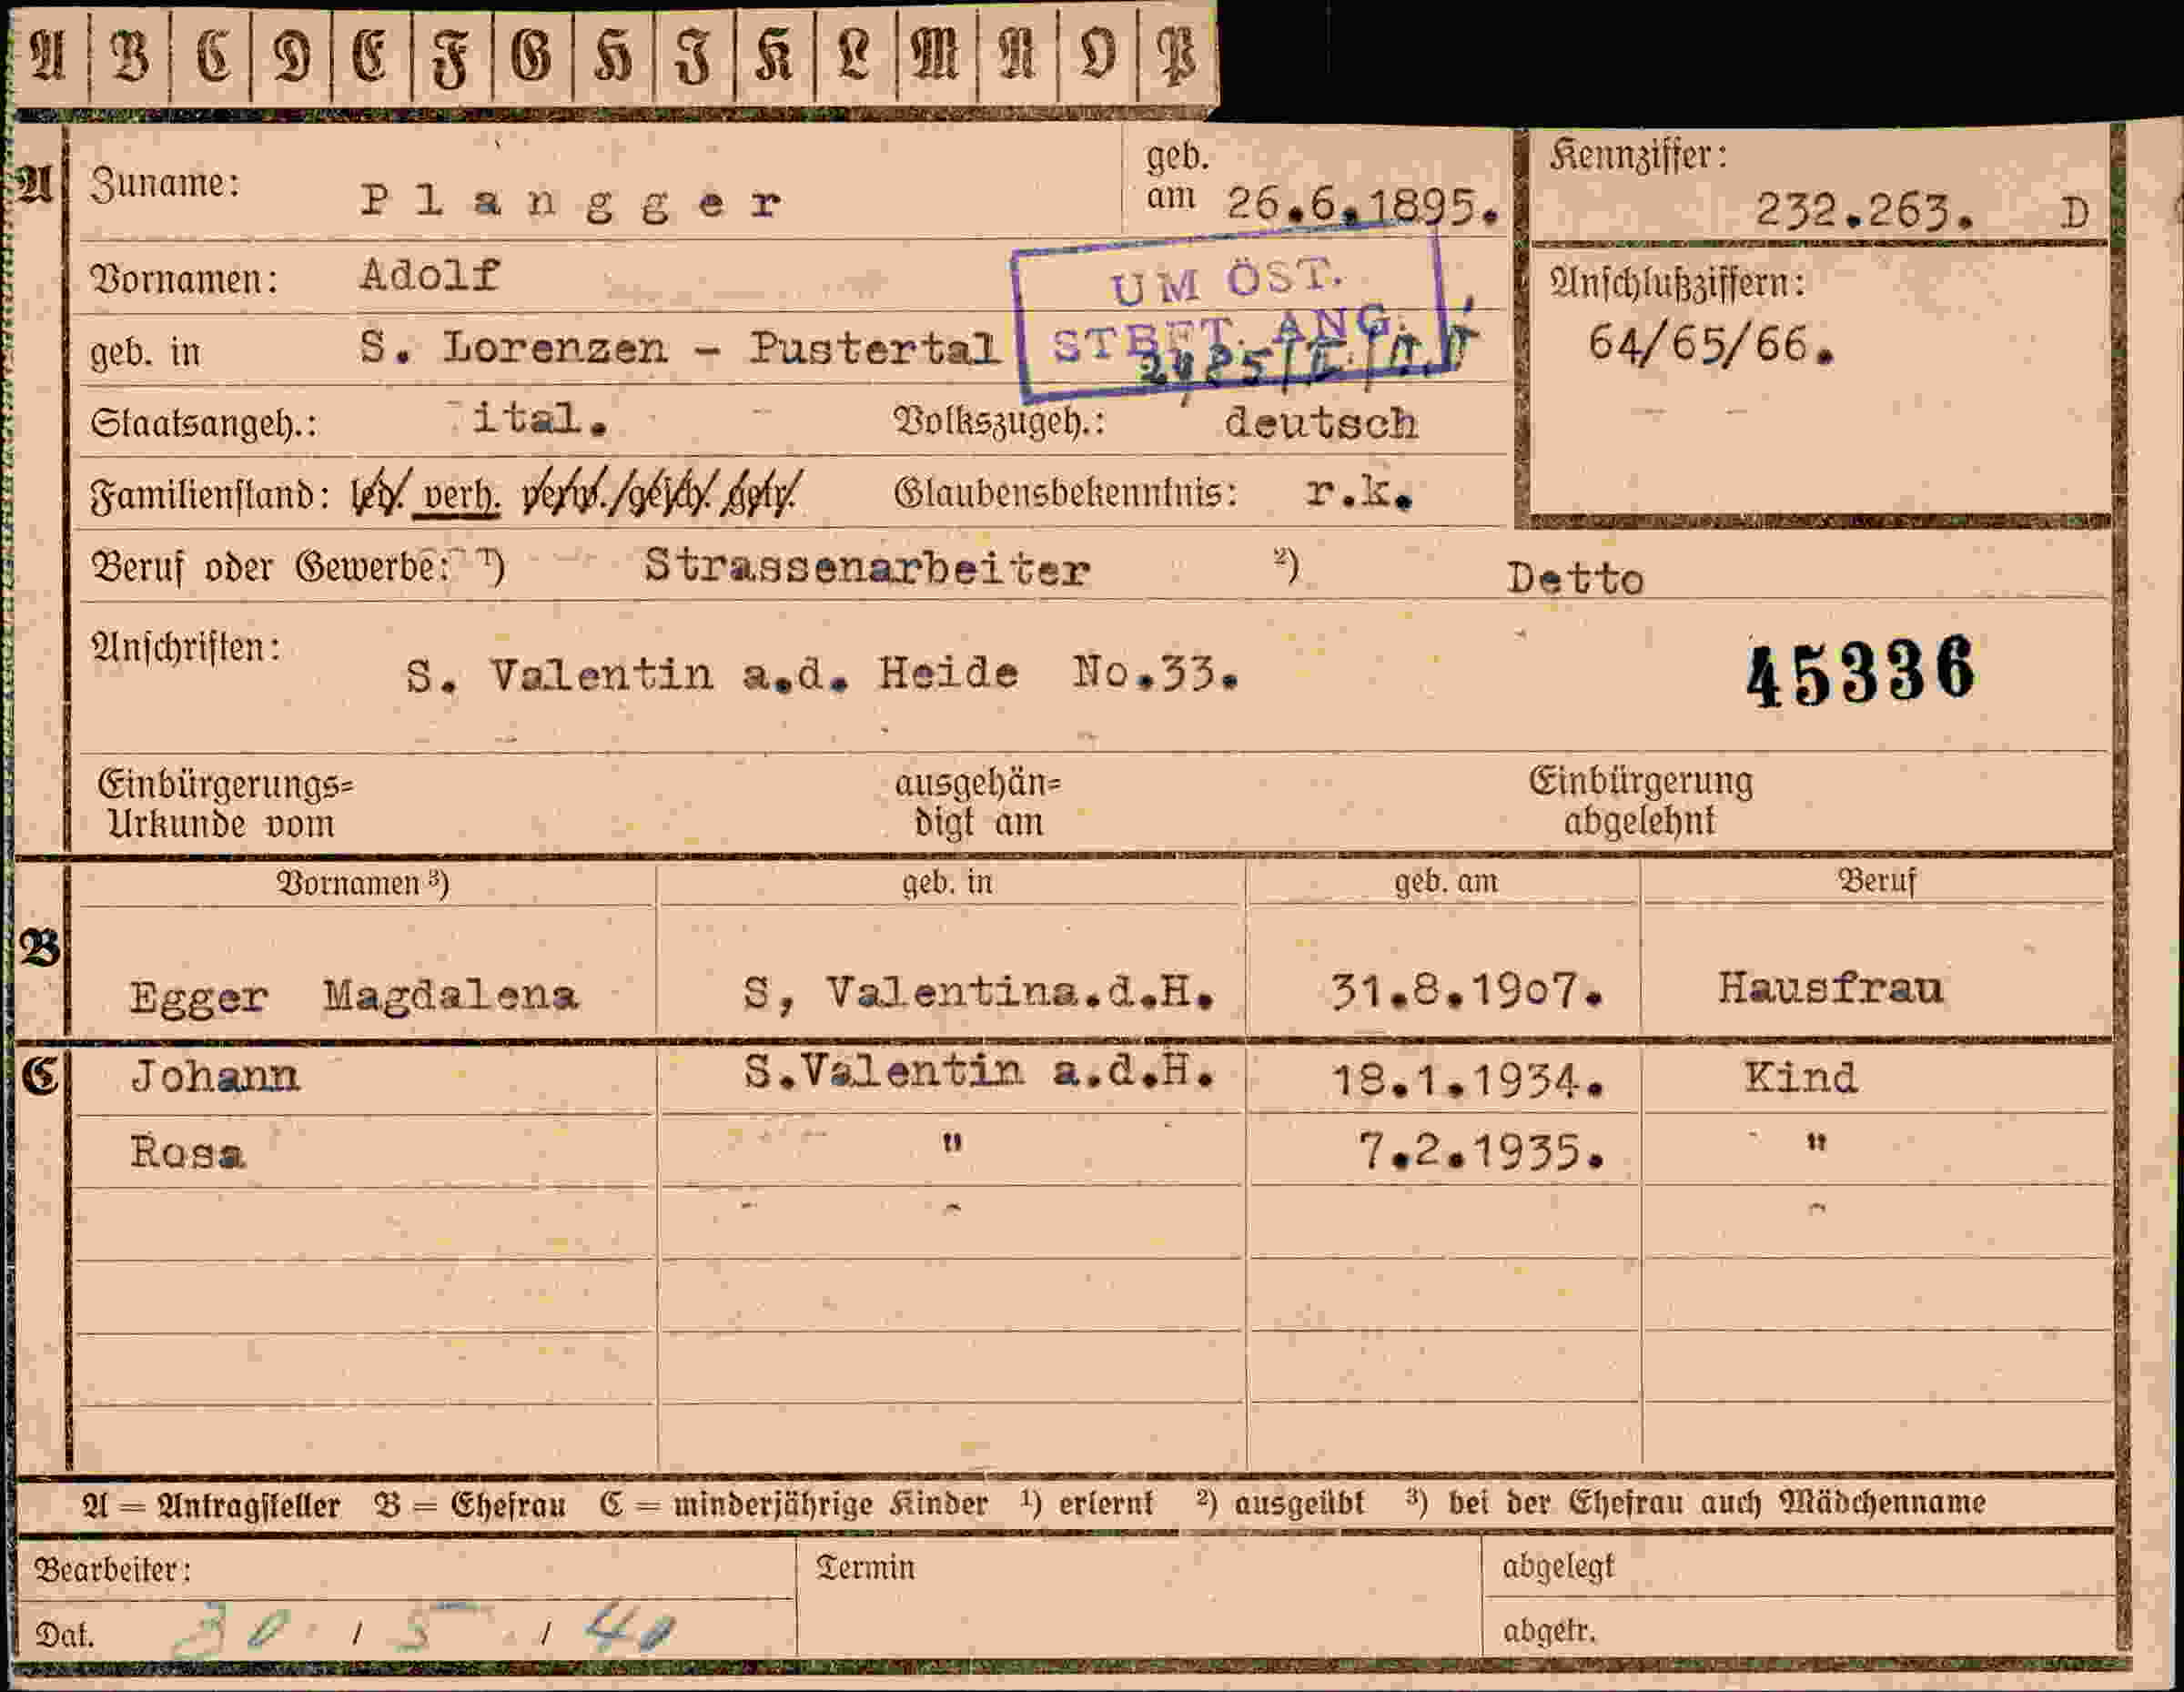 A B C D E F G H I K L M N O P
A Zuname: Plangger geb. am 26.6.1895. Kennziffer: 232.263. D
Vornamen: Adolf
UM ÖST.
STBFT. ANG.
Anschlußziffern:
64/65/66.
geb. in S. Lorenzen - Pustertal
Staatsangeh.: ital. Volkszugeh.: deutsch
Familienstand: led. verh. verw./gesch. getr. Glaubensbekenntnis: r.k.
Beruf oder Gewerbe: 1) Strassenarbeiter 2) Detto
Anschriften: S. Valentin a.d. Heide No.33. 45336
Einbürgerungs= ausgehän= Einbürgerung
Urkunde vom digt am abgelehnt
Vornamen 3) geb. in geb. am Beruf
B Egger Magdalena S, Valentina.d.H. 31.8.1907. Hausfrau
C Johann S.Valentin a.d.H. 18.1.1934. Kind
Rosa " 7.2.1935. "
A = Antragsteller B = Ehefrau C = minderjährige Kinder 1) erlernt 2) ausgeübt 3) bei der Ehefrau auch Mädchenname
Bearbeiter: Termin abgelegt
Dat. 30 / 5 / 40 abgetr.